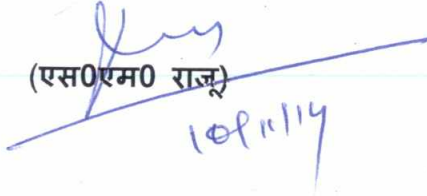 (एस0एम0 राजू)
10/11/14